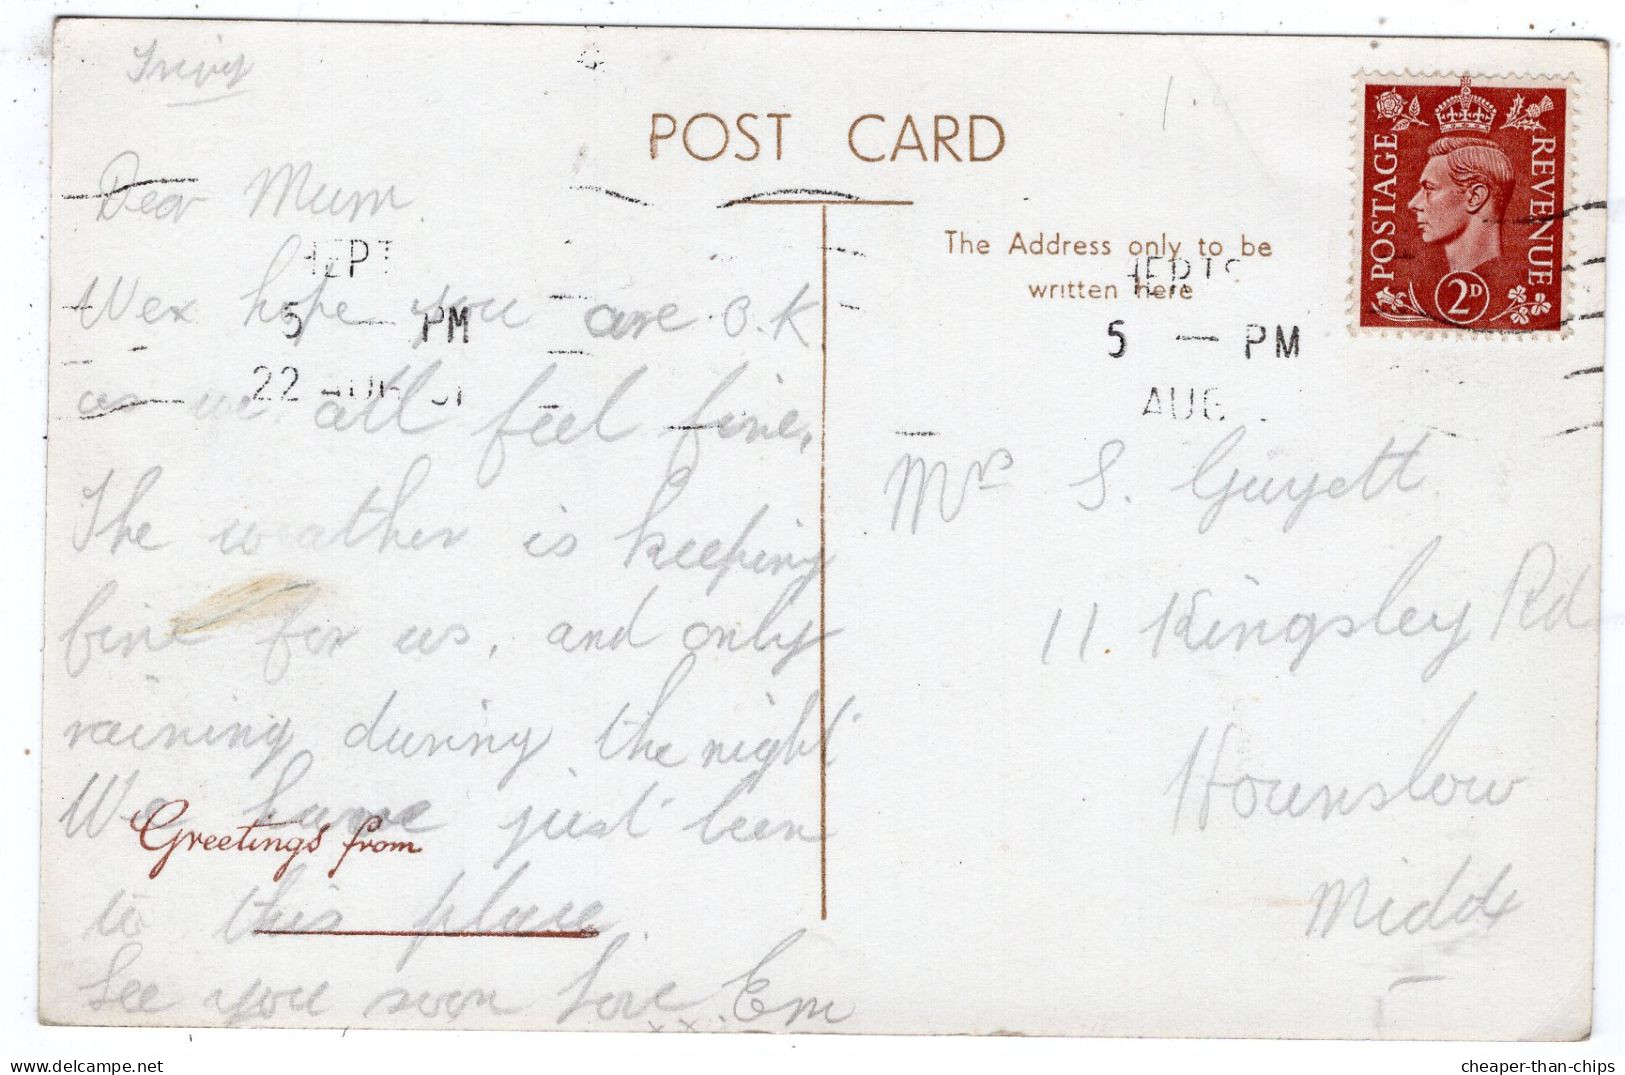 POST CARD
The Address only to be
written here
POSTAGE
REVENUE
2D
HERTS
5 — PM
AUG
5 — PM
22 AUG 51
Dear Mum
We hope you are O.K
as we all feel fine.
The weather is keeping
fine for us, and only
raining during the night
We have just been
to this place
See you soon Love Em
x x
Greetings from
Mrs S. Guyett
11. Kingsley Rd
Hounslow
Middx
cheaper-than-chips